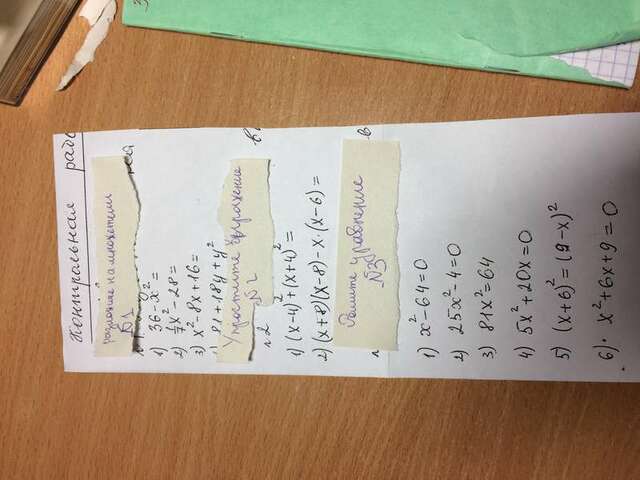 Контрольная рабо
разложите на множетели
№1
1) 36-x²=
2) 1/7x²-28=
3) x²-8x+16=
81+18y+y²
Упростите выражение
№2
№2
1) (x-4)²+(x+4)²=
2) (x+8)(x-8)-x·(x-6)=
Решите уравнение
№3
1) x²-64=0
2) 25x²-4=0
3) 81x²=64
4) 5x²+20x=0
5) (x+6)²=(9-x)²
6) x²+6x+9=0